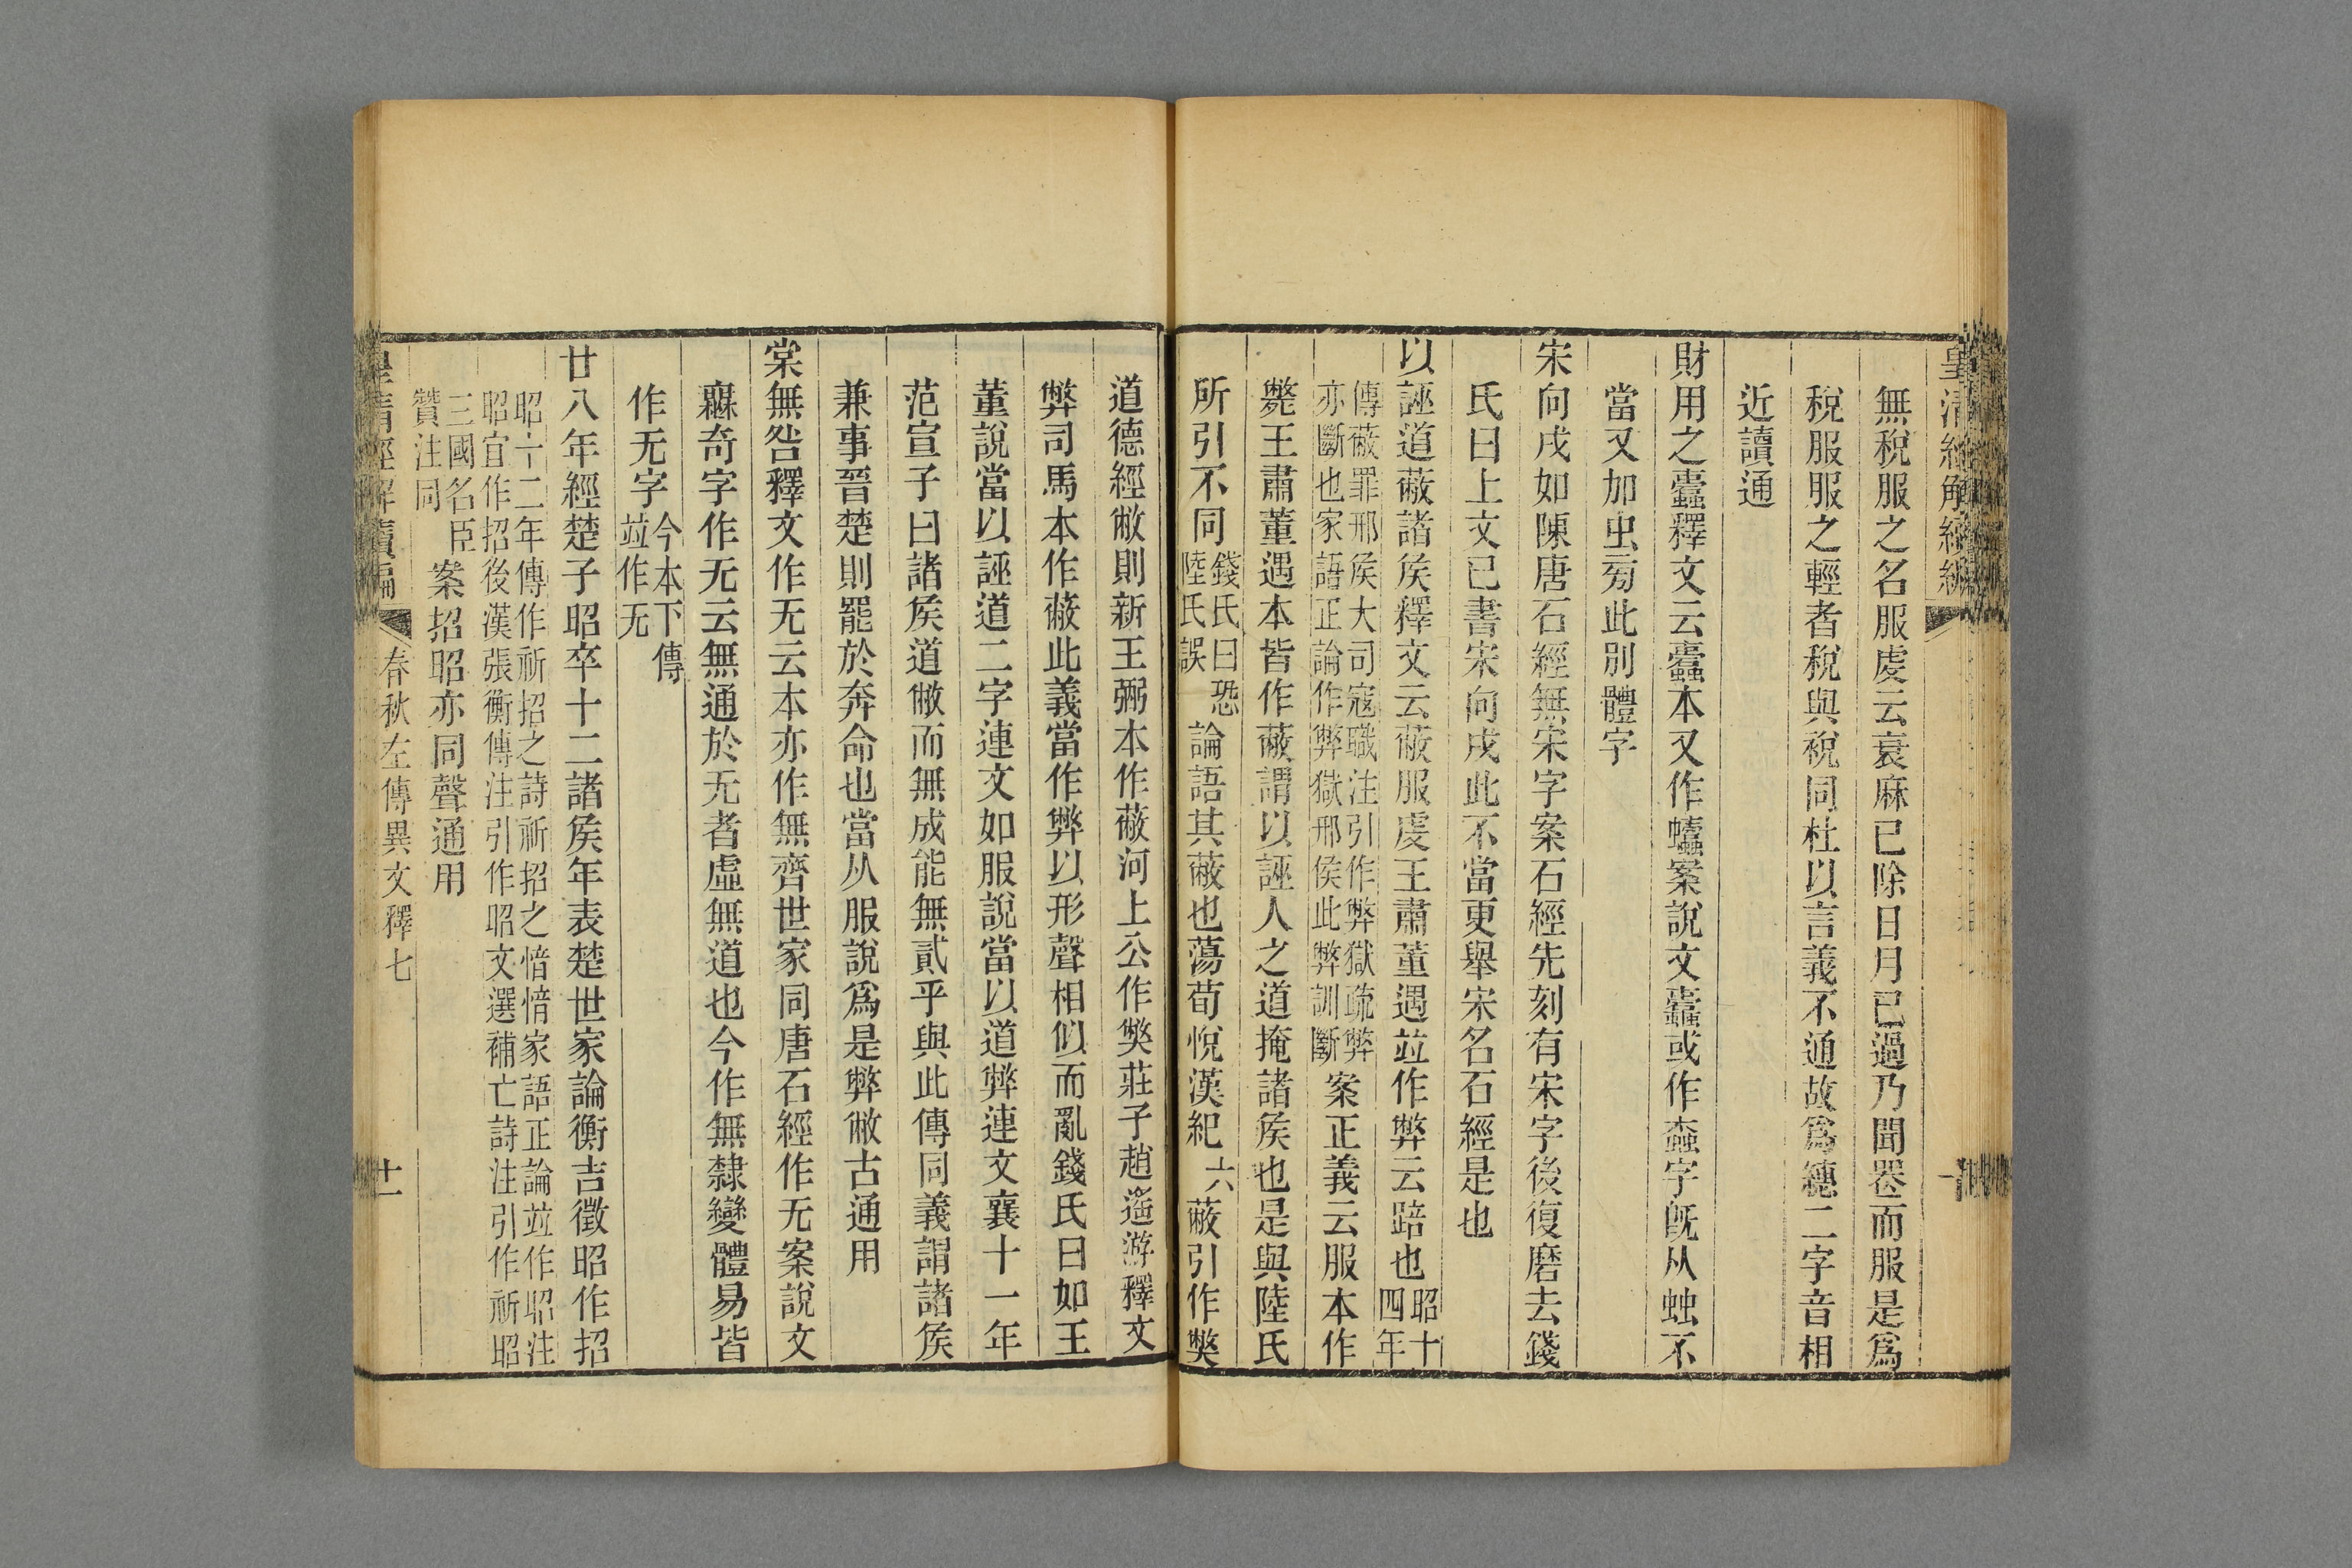 無稅服之名服虔云衰麻已除日月已過乃聞喪而服是爲
稅服服之輕者稅與裞同杜以言義不通故爲繐二字音相
近讀通
財用之蠹釋文云蠹本又作螙案說文蠹或作螙字旣从䖵不
當又加虫旁此別體字
宋向戌如陳唐石經無宋字案石經先刻有宋字後復磨去錢
氏曰上文已書宋向戌此不當更舉宋名石經是也
以誣道蔽諸侯釋文云蔽服虔王肅董遇並作弊云踣也昭十四年
傳蔽罪邢侯大司寇職注引作弊獄疏弊亦斷也家語正論作弊獄邢侯此弊訓斷案正義云服本作
斃王肅董遇本皆作蔽謂以誣人之道掩諸侯也是與陸氏
所引不同錢氏曰恐陸氏誤論語其蔽也蕩荀悅漢紀六蔽引作獘
道德經敝則新王弼本作蔽河上公作獘莊子逍遙游釋文
弊司馬本作蔽此義當作弊以形聲相似而亂錢氏曰如王
董說當以誣道二字連文如服說當以道弊連文襄十一年
范宣子曰諸侯道敝而無成能無貳乎與此傳同義謂諸侯
兼事晉楚則罷於奔命也當从服說爲是弊敝古通用
棠無咎釋文作无云本亦作無齊世家同唐石經作无案說文
𣞤奇字作无云無通於无者虛無道也今作無隸變體易皆
作无字今本下傳並作无
廿八年經楚子昭卒十二諸侯年表楚世家論衡吉徵昭作招
昭十二年傳作祈招之詩祈招之愔愔家語正論並作昭注昭宜作招後漢張衡傳注引作昭文選補亡詩注引作祈昭
三國名臣贊注同案招昭亦同聲通用
春秋左傳異文釋七
十一